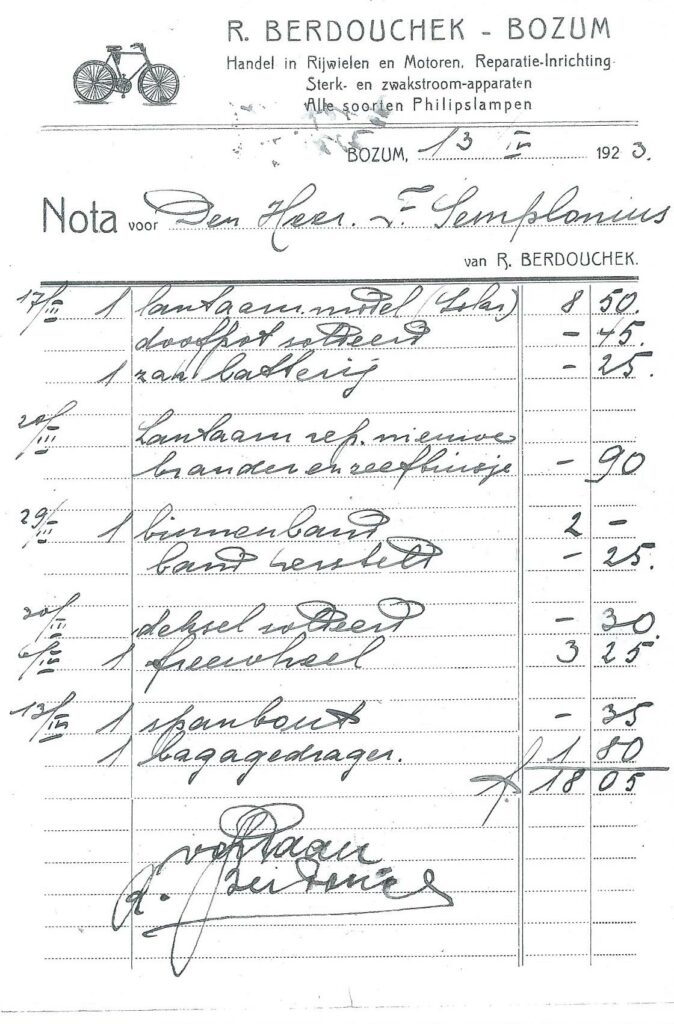 R. BERDOUCHEK - BOZUM
Handel in Rijwielen en Motoren, Reparatie-Inrichting
Sterk- en zwakstroom-apparaten
Alle soorten Philipslampen
BOZUM, 13 IV 1923.
Nota voor Den Heer. F. Semplonius
van R. BERDOUCHEK.
17/III 1 lantaarn. model (Solar) 8 50.
doofpot soldeerd - 45.
1 zak batterij - 25.
20/III Lantaarn rep. nieuwe
brander en zeefbuisje - 90
29/III 1 binnenband 2 -
band hersteld - 25.
deksel soldeerd - 30.
1 freewheel 3 25
13/IV 1 spanbout - 35
1 bagagedrager. 1 80
f. 18 05
voldaan
R. Berdouchek